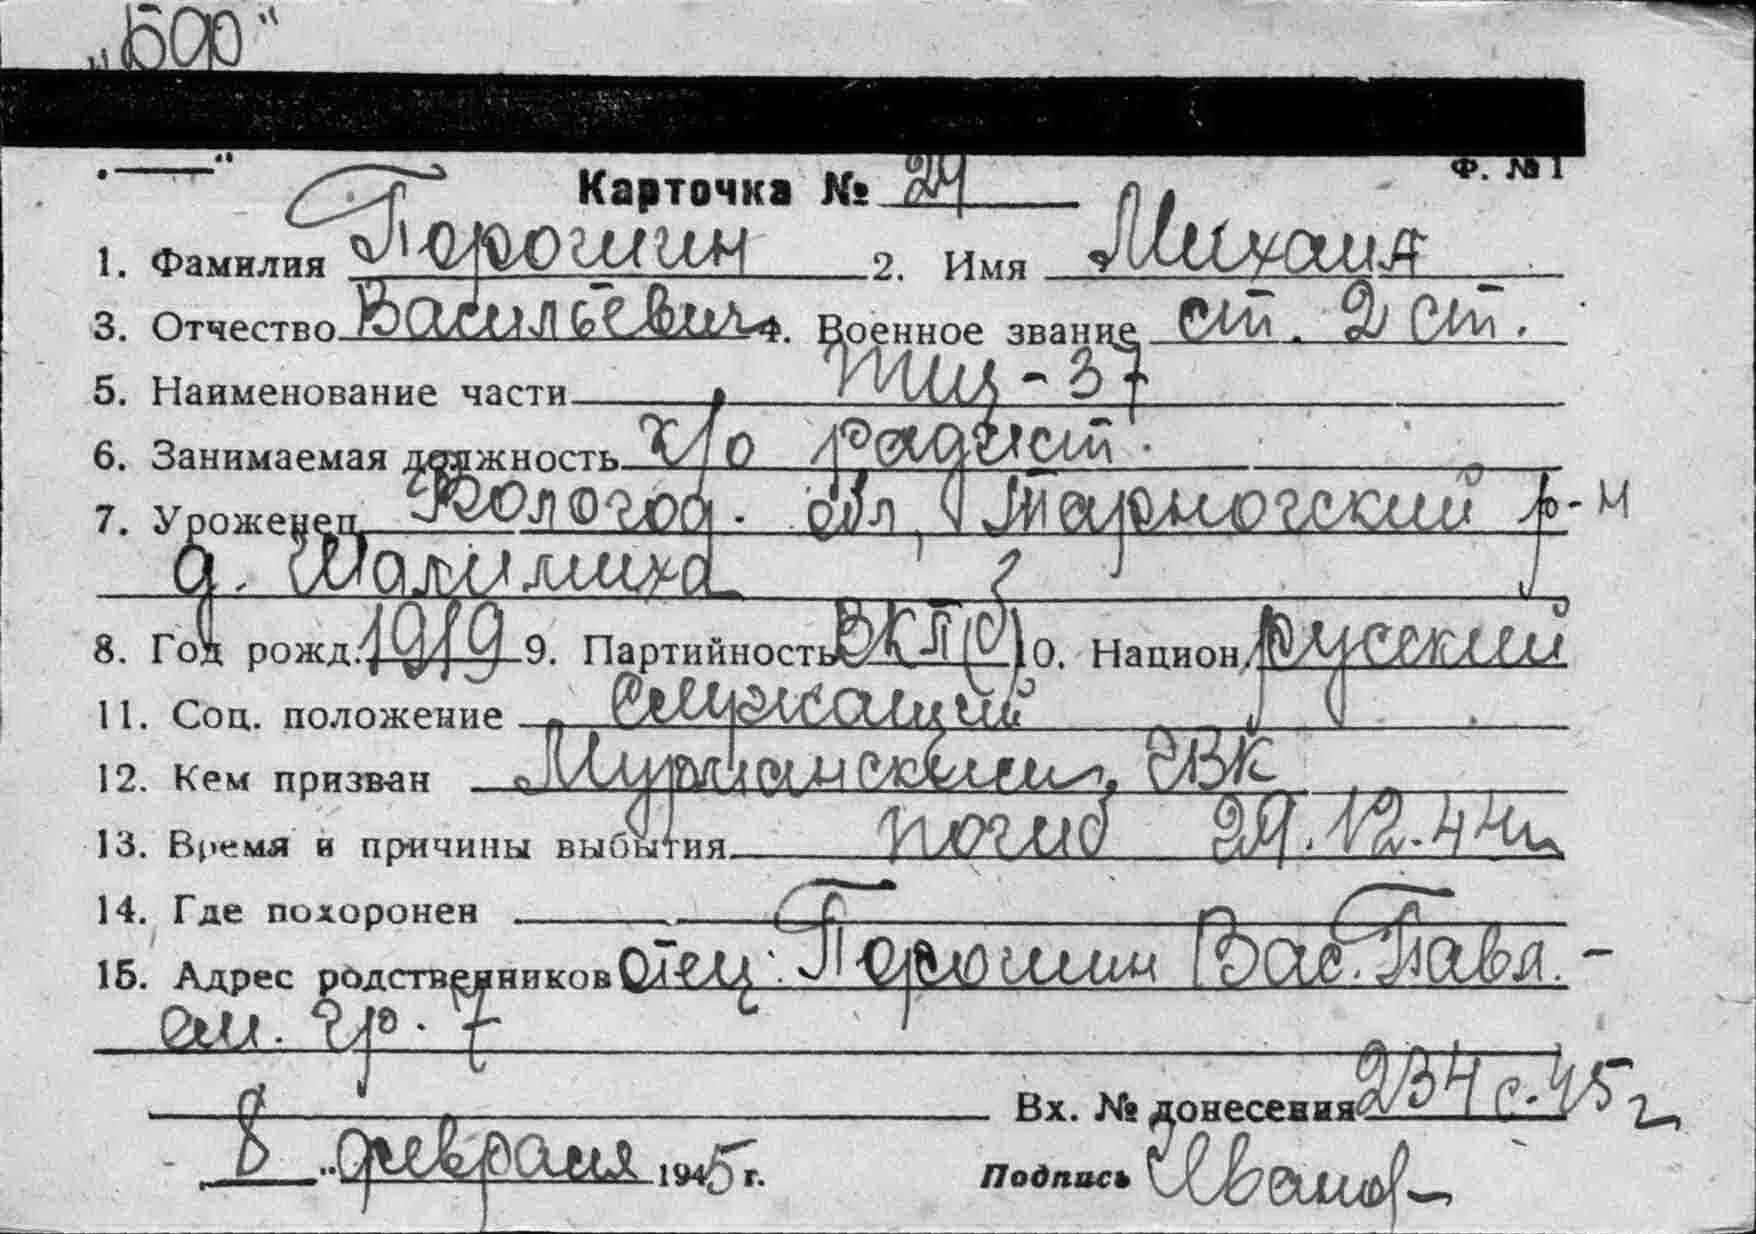 „БФ"
"——"
Ф. № 1
Карточка № 24
1. Фамилия Порошин 2. Имя Михаил
3. Отчество Васильевич 4. Военное звание ст. 2 ст.
5. Наименование части ТЩ-37
6. Занимаемая должность х/о радист.
7. Уроженец Вологод. обл, Тарногский р-н
д. Шалимиха
8. Год рожд. 1919 9. Партийность ВКП(б) 10. Национ. русский
11. Соц. положение служащий
12. Кем призван Мурманским ГВК
13. Время и причины выбытия погиб 29.12.44г
14. Где похоронен
15. Адрес родственников отец: Порошин Вас. Павл. -
см. гр. 7
Вх. № донесения 234 с. 45 г
8 „февраля 1945 г.
Подпись Иванов